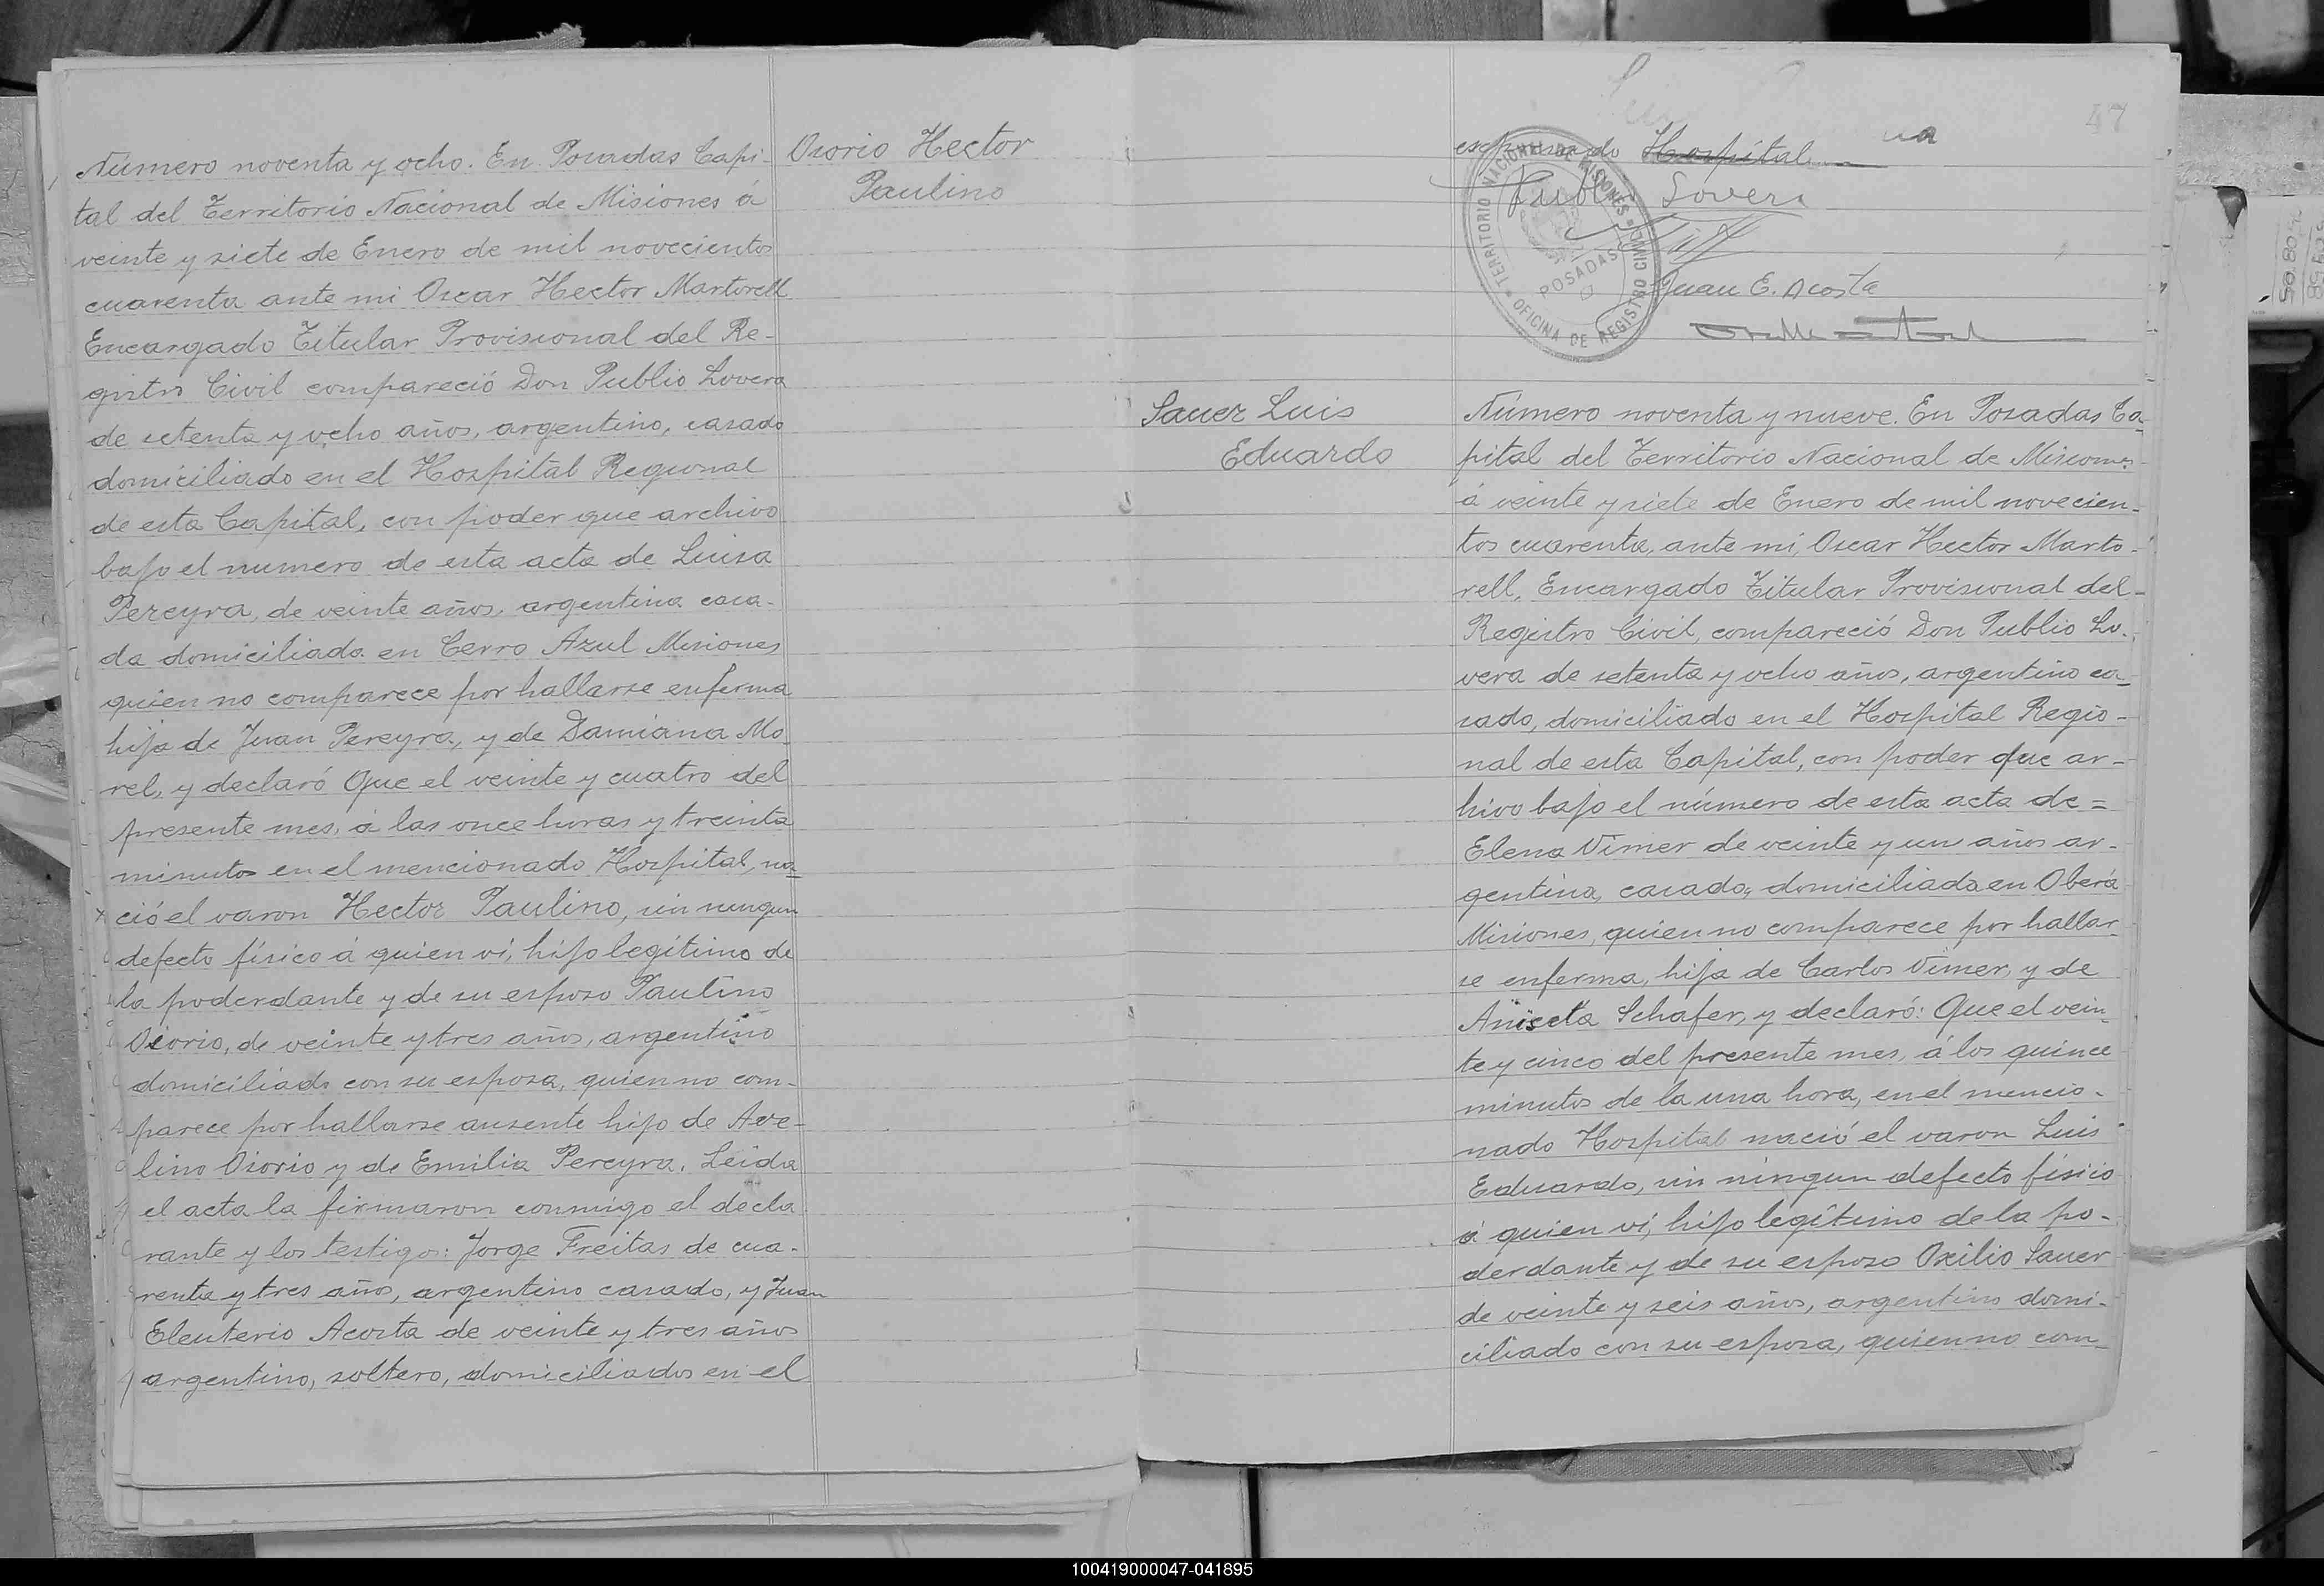 Número noventa y ocho. En Posadas Capi-
tal del Territorio Nacional de Misiones á
veinte y siete de Enero de mil novecientos
cuarenta ante mi Oscar Hector Martorell
Encargado Titular Provisional del Re-
gistro Civil compareció Don Publio Lovera
de setenta y ocho años, argentino, casado
domiciliado en el Hospital Regional
de esta Capital, con poder que archivo
bajo el numero de esta acta de Luisa
Pereyra, de veinte años, argentina casa-
da domiciliada en Cerro Azul Misiones
quien no comparece por hallarse enferma
hija de Juan Pereyra, y de Damiana Mo-
rel, y declaró Que el veinte y cuatro del
presente mes, á las once horas y treinta
minutos en el mencionado Hospital, na-
ció el varon Hector Paulino, sin ningun
defecto físico á quien vi, hijo legítimo de
la poderdante y de su esposo Paulino
Osorio, de veinte y tres años, argentino
domiciliado con su esposa, quien no com-
parece por hallarse ausente hijo de Ave-
lino Osorio y de Emilia Pereyra. Leida
el acta la firmaron conmigo el decla-
rante y los testigos: Jorge Freitas de cua-
renta y tres años, argentino casado, y Juan
Eleuterio Acosta de veinte y tres años
argentino, soltero, domiciliados en el
Osorio Hector
Paulino
47
expresado Hospital
Publio Lovera
Juan E. Acosta
TERRITORIO NACIONAL DE MISIONES
OFICINA DE REGISTRO CIVIL
POSADAS
Sauer Luis
Eduardo
Número noventa y nueve. En Posadas Ca-
pital del Territorio Nacional de Misiones-
á veinte y siete de Enero de mil novecien-
tos cuarenta, ante mi, Oscar Hector Marto-
rell, Encargado Titular Provisional del-
Registro Civil, compareció Don Publio Lo-
vera de setenta y ocho años, argentino ca-
sado, domiciliado en el Hospital Regio-
nal de esta Capital, con poder que ar-
hivo bajo el número de esta acta de=
Elena Vimer de veinte y un años ar-
gentina, casada, domiciliada en Oberá
Misiones, quien no comparece por hallar-
se enferma, hija de Carlos Vimer, y de
Aniseta Schafer, y declaró: Que el vein-
te y cinco del presente mes, á los quince
minutos de la una hora, en el mencio-
nado Hospital nació el varon Luis
Eduardo, sin ningun defecto físico
á quien vi, hijo legítimo de la po-
derdante y de su esposo Oxilio Sauer
de veinte y seis años, argentino domi-
ciliado con su esposa, quien no com-
100419000047-041895